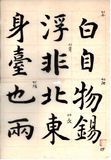 白自物錫
浮非北東
身臺也兩